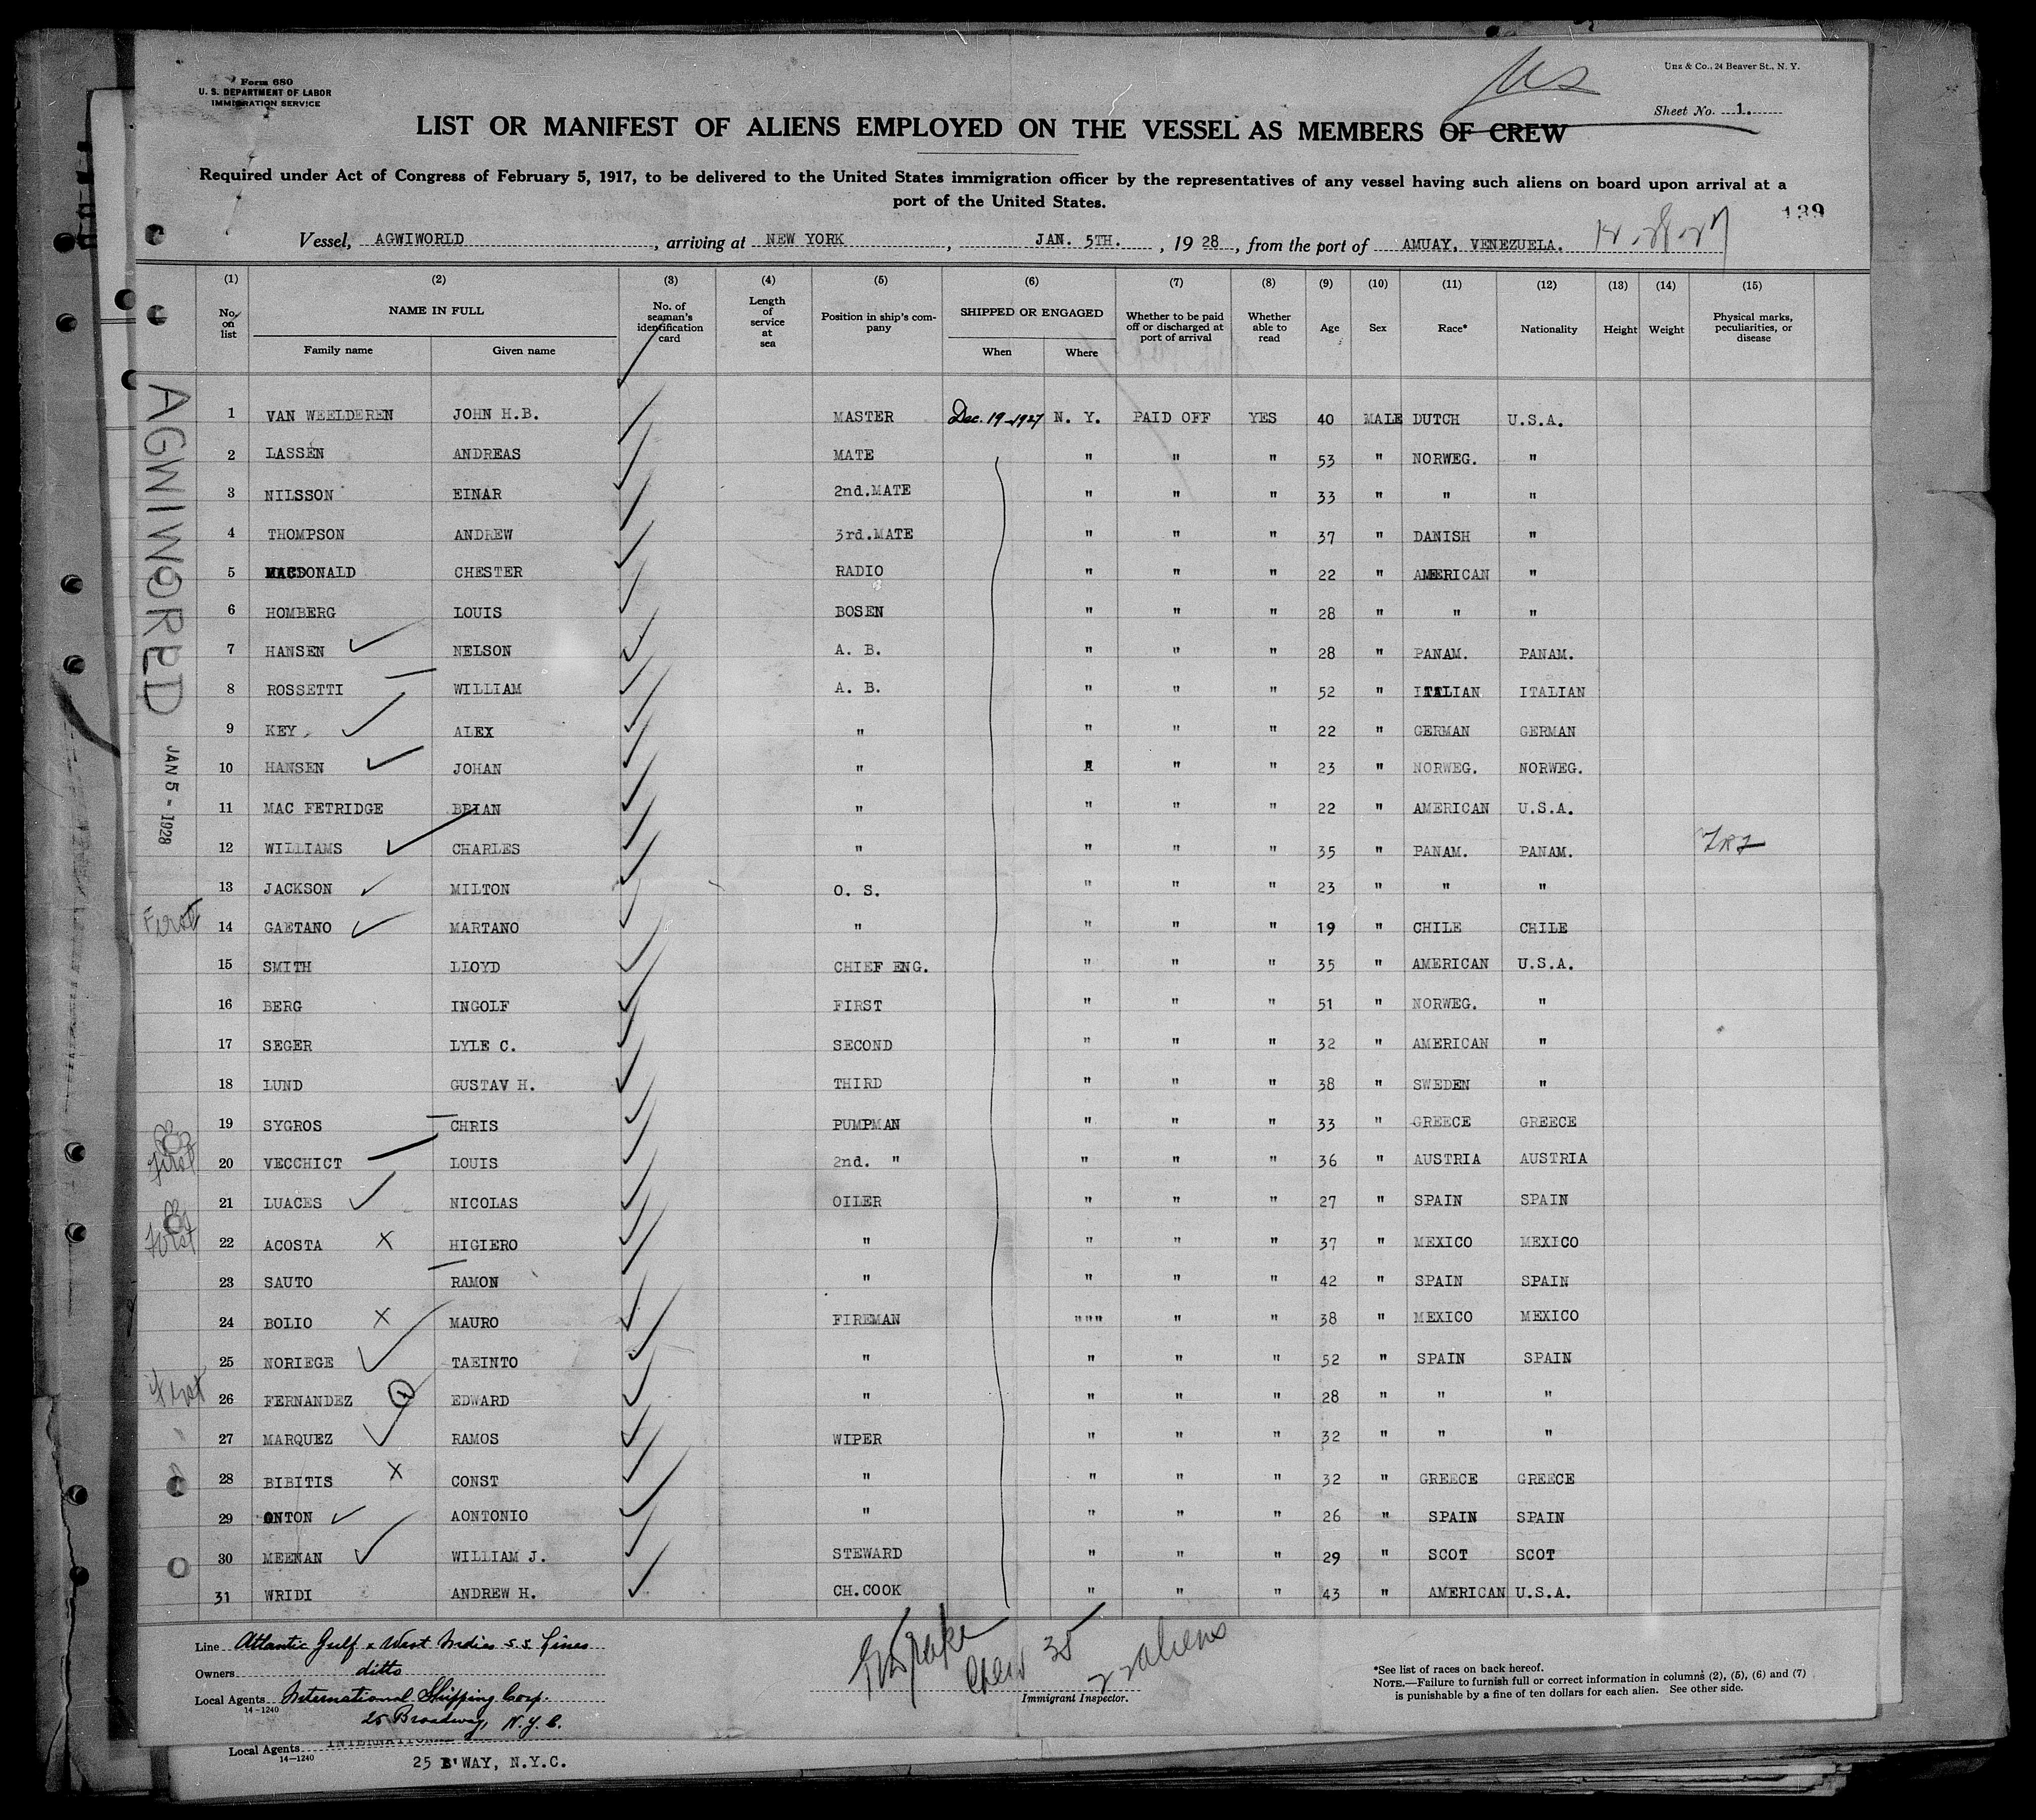 Form 680
U. S. DEPARTMENT OF LABOR
IMMIGRATION SERVICE
Unz & Co., 24 Beaver St., N. Y.
Sheet No. 1.
LIST OR MANIFEST OF ALIENS EMPLOYED ON THE VESSEL AS MEMBERS OF CREW
Required under Act of Congress of February 5, 1917, to be delivered to the United States immigration officer by the representatives of any vessel having such aliens on board upon arrival at a
port of the United States.
139
Vessel, AGWIWORLD, arriving at NEW YORK, JAN. 5TH., 1928, from the port of AMUAY, VENEZUELA.
(1) (2) (3) (4) (5) (6) (7) (8) (9) (10) (11) (12) (13) (14) (15)
No. on list NAME IN FULL Family name Given name No. of seaman's identification card Length of service at sea Position in ship's company SHIPPED OR ENGAGED When Where Whether to be paid off or discharged at port of arrival Whether able to read Age Sex Race* Nationality Height Weight Physical marks, peculiarities, or disease
AGWIWORLD JAN 5 - 1928
1 VAN WEELDEREN JOHN H.B. MASTER Dec. 19-1927 N. Y. PAID OFF YES 40 MALE DUTCH U.S.A.
2 LASSEN ANDREAS MATE " " " 53 " NORWEG. "
3 NILSSON EINAR 2nd.MATE " " " 33 " " "
4 THOMPSON ANDREW 3rd.MATE " " " 37 " DANISH "
5 MACDONALD CHESTER RADIO " " " 22 " AMERICAN "
6 HOMBERG LOUIS BOSEN " " " 28 " " "
7 HANSEN NELSON A. B. " " " 28 " PANAM. PANAM.
8 ROSSETTI WILLIAM A. B. " " " 52 " ITALIAN ITALIAN
9 KEY ALEX " " " " 22 " GERMAN GERMAN
10 HANSEN JOHAN " " " 23 " NORWEG. NORWEG.
11 MAC FETRIDGE BRIAN " " " " 22 " AMERICAN U.S.A.
12 WILLIAMS CHARLES " " " " 35 " PANAM. PANAM.
13 JACKSON MILTON O. S. " " " 23 " " "
First 14 GAETANO MARTANO " " " " 19 " CHILE CHILE
15 SMITH LLOYD CHIEF ENG. " " " 35 " AMERICAN U.S.A.
16 BERG INGOLF FIRST " " " 51 " NORWEG. "
17 SEGER LYLE C. SECOND " " " 32 " AMERICAN "
18 LUND GUSTAV H. THIRD " " " 38 " SWEDEN "
19 SYGROS CHRIS PUMPMAN " " " 33 " GREECE GREECE
First 20 VECCHICT LOUIS 2nd. " " " " 36 " AUSTRIA AUSTRIA
21 LUACES NICOLAS OILER " " " 27 " SPAIN SPAIN
First 22 ACOSTA X HIGIERO " " " " 37 " MEXICO MEXICO
23 SAUTO RAMON " " " " 42 " SPAIN SPAIN
24 BOLIO X MAURO FIREMAN """ " " 38 " MEXICO MEXICO
25 NORIEGE TAEINTO " " " " 52 " SPAIN SPAIN
First 26 FERNANDEZ EDWARD " " " " 28 " " "
27 MARQUEZ RAMOS WIPER " " " 32 " " "
28 BIBITIS X CONST " " " " 32 " GREECE GREECE
29 ONTON AONTONIO " " " " 26 " SPAIN SPAIN
30 MEENAN WILLIAM J. STEWARD " " " 29 " SCOT SCOT
31 WRIDI ANDREW H. CH.COOK " " " 43 " AMERICAN U.S.A.
Line Atlantic Gulf & West Indies S.S. Lines
Owners ditto
Local Agents International Shipping Corp.
14-1240
25 Broadway, N.Y.C.
Crew 35
22 aliens
Immigrant Inspector.
*See list of races on back hereof.
NOTE.—Failure to furnish full or correct information in columns (2), (5), (6) and (7)
is punishable by a fine of ten dollars for each alien. See other side.
Local Agents INTERNATIONAL
14-1240
25 B'WAY, N.Y.C.